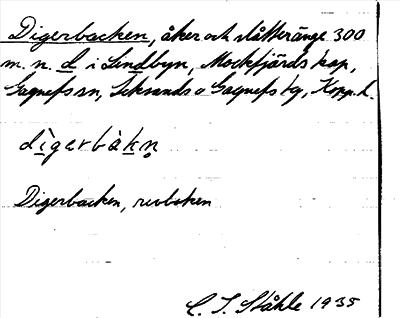 Digerbacken, åker och slåtteräng 300
m. n. d i Lindbyn, Mockfjärds kap,
Gagnefs sn, Leksands o Gagnefs tg, Kopp. l.
dìgerbàkn̥
Digerbacken, revboken
C. I. Ståhle 1935